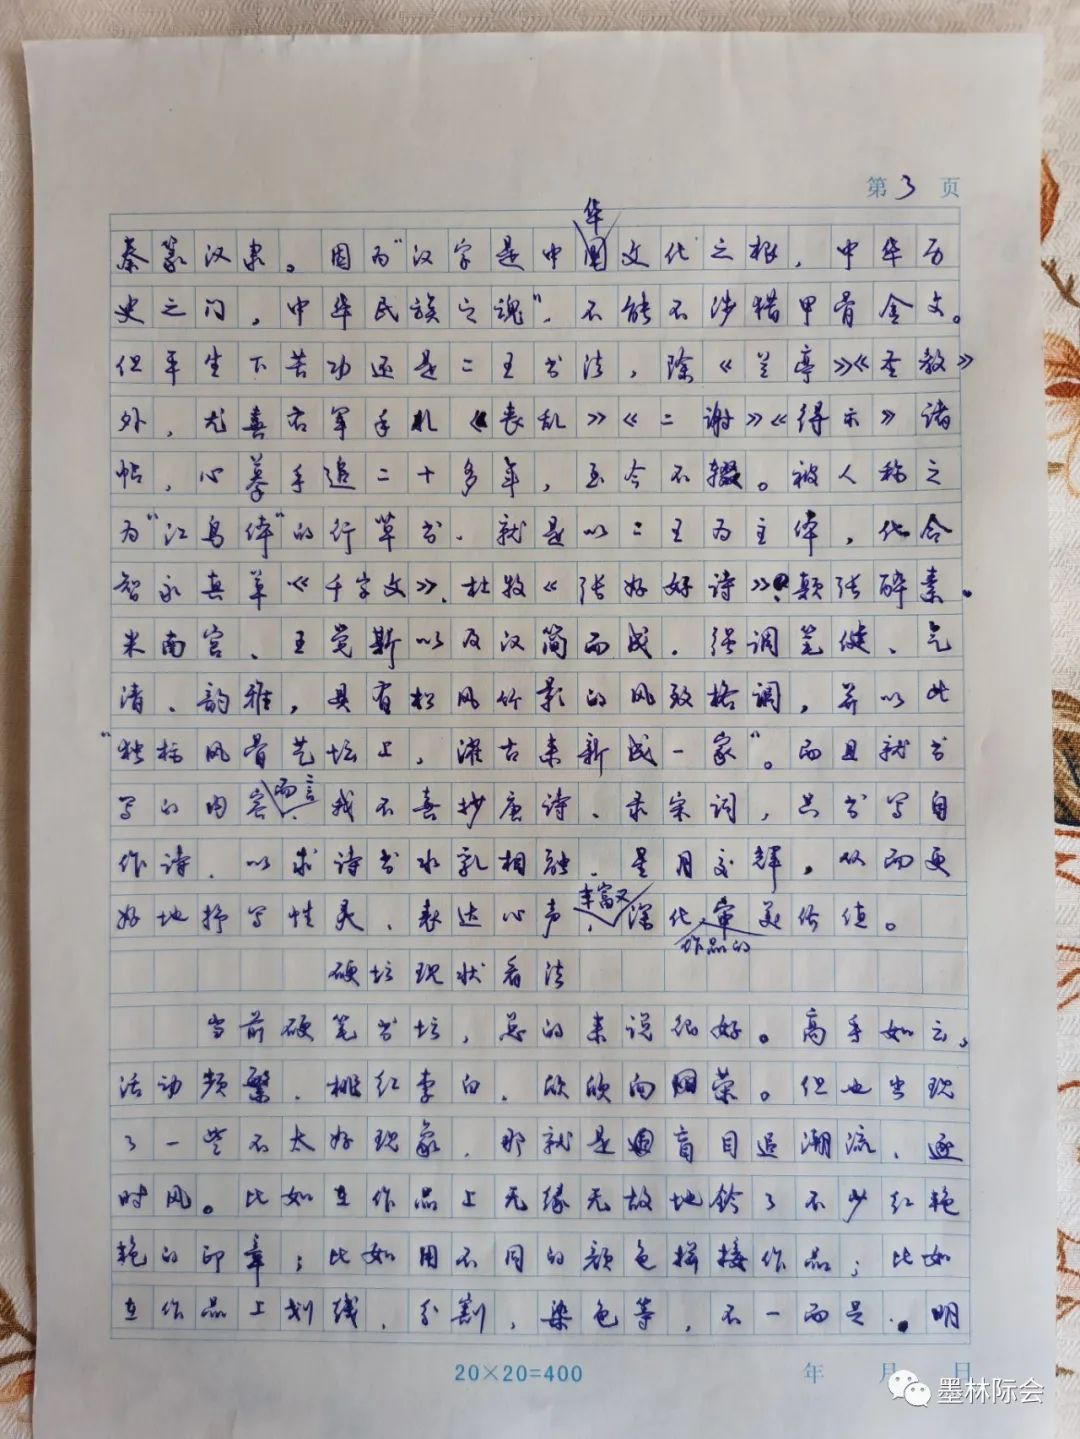 第3页
华
秦篆汉隶。因为“汉字是中国文化之根，中华历
史之门，中华民族之魂”，不能不涉猎甲骨金文。
但平生下苦功还是二王书法，除《兰亭》《圣教》
外，尤喜右军手札《丧乱》《二谢》《得示》诸
帖，心摹手追二十多年，至今不辍。被人称之
为“江鸟体”的行草书，就是以二王为主体，化合
智永真草《千字文》、杜牧《张好好诗》、颠张醉素、
米南宫、王觉斯以及汉简而成。强调笔健、气
清、韵雅，具有松风竹影的风致格调，并以此
“独标风骨艺坛上，濯古来新成一家”。而且就书
写的内容而言，我不喜抄唐诗、录宋词，只书写自
作诗，以求诗书水乳相融，星月交辉，从而更
好地抒写性灵、表达心声，丰富又深化作品的审美价值。
硬坛现状看法
当前硬笔书坛，总的来说很好。高手如云，
活动频繁，桃红李白，欣欣向荣。但也出现
了一些不太好现象，那就是盲目追潮流、逐
时风。比如在作品上无缘无故地钤了不少红艳
艳的印章；比如用不同的颜色拼接作品；比如
在作品上划线，分割，染色等，不一而足。明
20×20=400 年 月 日
墨林际会